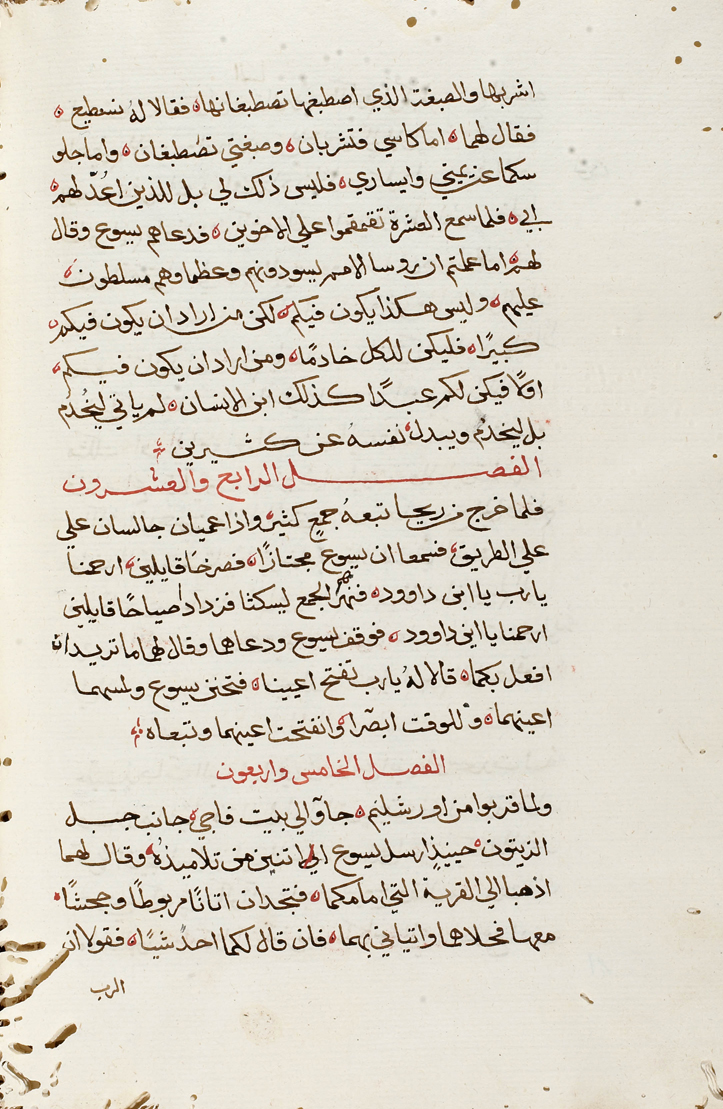 اشربها والصبغة الذي اصطبغها تصطبغانها فقالا لهُ نسطيع
فقال لهما اما كاسي فتشربان وصبغتي تصطبغان واما جلو
سكما عن يميني وايساري فليس ذلك لي بل للذين اعُدّ لهم
ابي فلما سمع العشرة تقمقموا علي الاخوين فدعاهم يسوع وقال
لهم اما علمتم ان روسا الامم يسودونهم وعظماوهم مسلطون
عليهم وليس هكذا يكون فيكم لكن من اراد ان يكون فيكم
كبيرًا فليكن للكل خادمًا ومن اراد ان يكون فيكم
اولًا فيكن لكم عبدًا كذلك ابن الانسان لم ياتي ليُخدُم
بل ليخدُم ويبدل نفسهُ عن كثيرين
الفصل الرابع والعشرون
فلما خرج من ريحا تبعهُ جمع كثير واذا عميان جالسان علي
علي الطريق فسمعا ان يسوع مجتازًا فصرخا قايلين ارحمنا
يا رب يا ابن داوود فنهرهم الجمع ليسكتا فزدادا صياحًا قايلين
ارحمنا يا ابن داوود فوقف يسوع ودعاهما وقال لهما ما تريدا ان
افعل بكما قالا لهُ يا رب تفتح اعيينا فتحنن يسوع ولمسهما
اعينهما وللوقت ابصرا وانفتحت اعينهما وتبعاه
الفصل الخامس واربعون
ولما قربوا من اورشليم جاوّا الي بيت فاجي جانب جبل
الزيتون حينيذٍ ارسل يسوع الي اتنين من تلاميذهُ وقال لهما
اذهبا الي القرية التي امامكما فتجدان اتانًا مربوطًا وجحشًا
معها فحلاها واتياني بهما فان قال لكما احدٌ شيًا فقولا ان
الرب